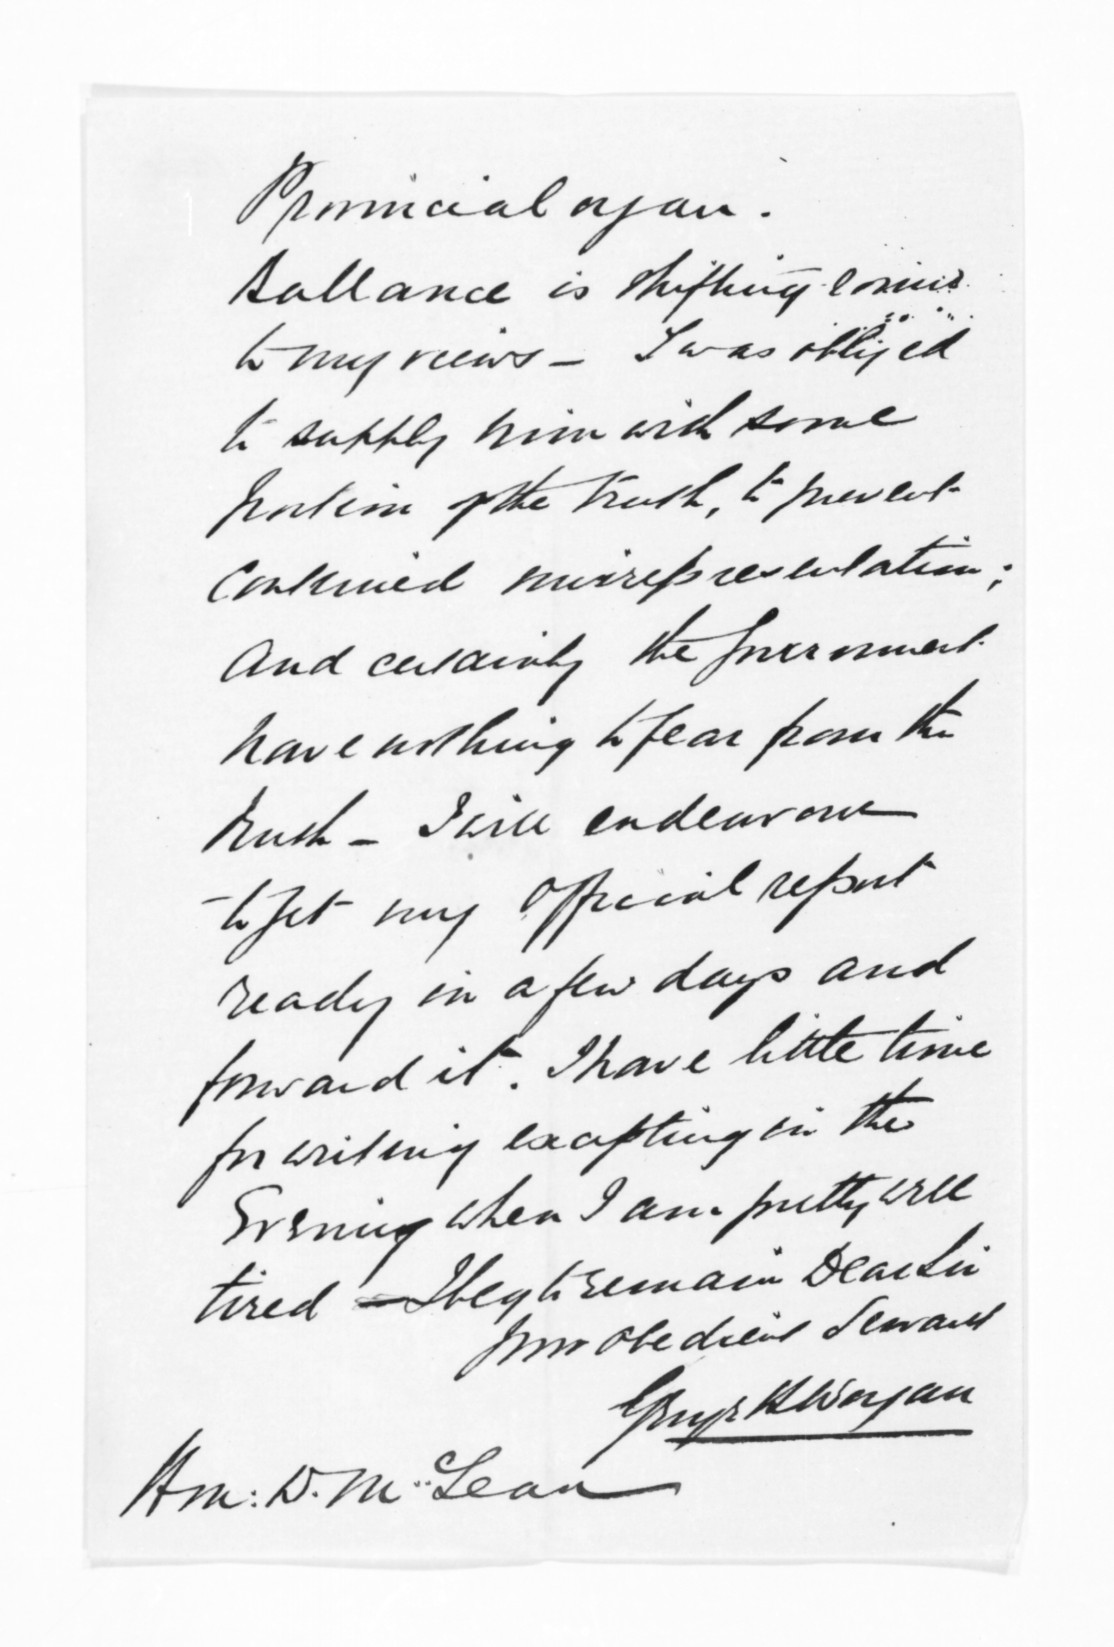 Provincial organ.
Ballance is shifting round
to my views - I was obliged
to supply him with some
portion of the truth, to prevent
continued misrepresentation;
and certainly the Government
have nothing to fear from the
truth - I will endeavour
to get my Official report
ready in a few days and
forward it. I have little time
for writing excepting in the
Evening when I am pretty well
tired - I beg to remain Dear Sir
your obedient Servant
George H Worgan
Hon: D. McLean